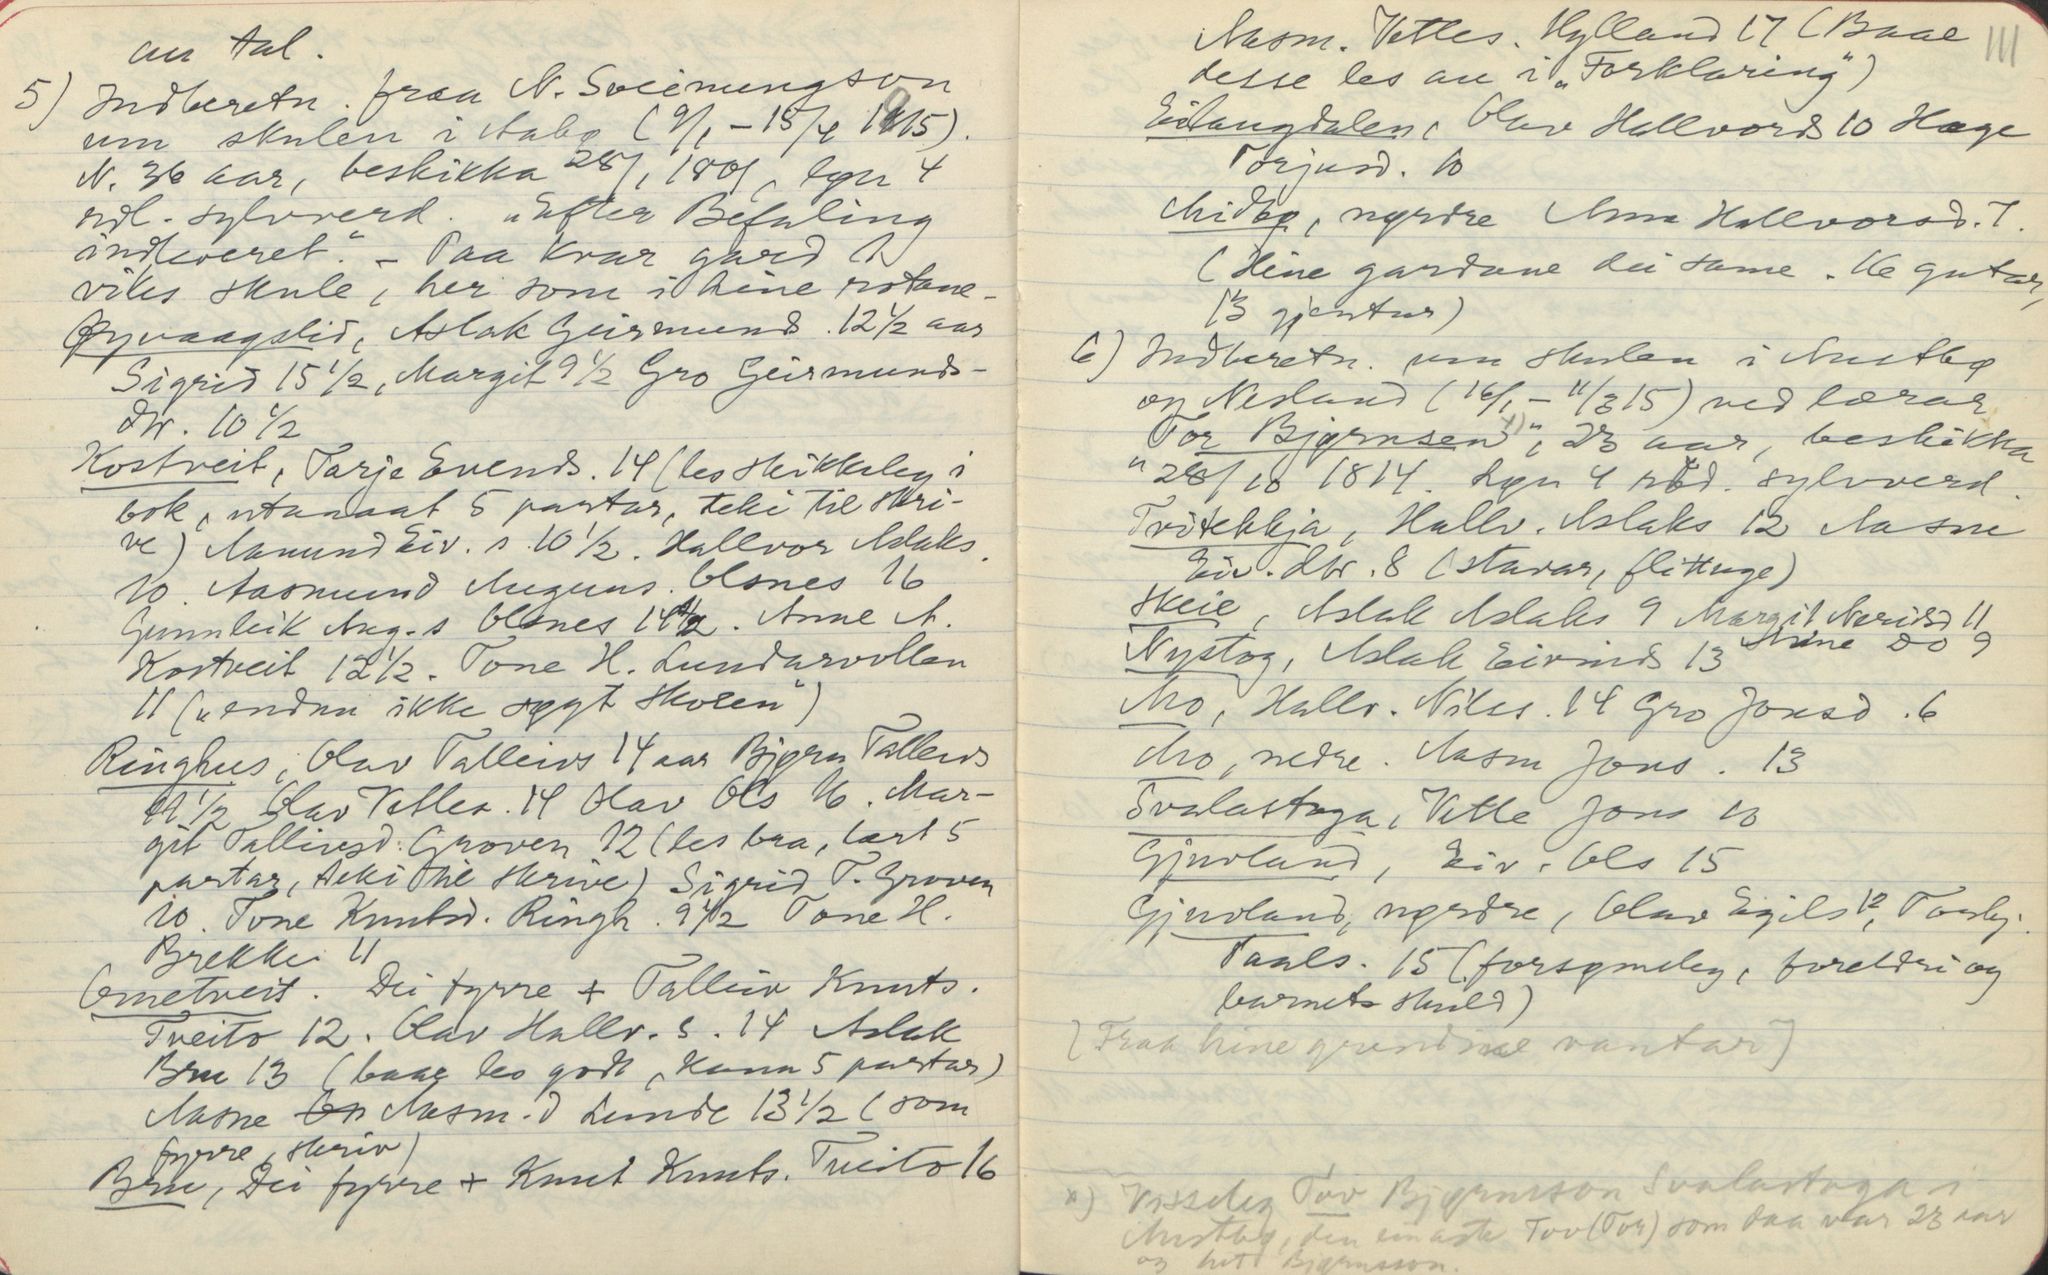 au tal.
5) Indberetn. fraa N. Sveinungson
um skulen i Aabø (9/1 – 15/4 1815).
N. 36 aar, beskikka 28/1 1801, løgn 4
rdl. sylvverd. "Efter Befaling
indleveret." – Paa kvar gard 2
vikis skule, her som i hine rotane –
Øyvaagslid, Aslak Geirmunds. 12 1/2 aar
Sigrid 15 1/2, Margit 9 1/2 Gro Geirmunds-
dtr. 10 1/2
Kostveit, Tarje Evends. 14 (les skikkeleg i
bok, utanaat 5 partar, teki til skri-
ve) Aamund Eiv. s. 10 1/2. Hallvor Aslaks.
10. Aasmund Auguns. Olsnes 16
Gunnleik Aug. s Olsnes 14 1/2. Anne A.
Kostveit 12 1/2. Tone H. Lundarvollen
11 ("endnu ikke søgt Skolen")
Ringhus, Olav Talleivs 14 aar Bjørn Talleivs
11 1/2 Olav Vetles. 14 Olav Ols 16. Mar-
git Talleivsd. Groven 12 (les bra, lært 5
partar, teki til skrive) Sigrid T. Groven
10. Tone Knutsd. Ringh. 9 1/2 Tone H.
Brekke 11
Ometveit. Dei fyrre + Talleiv Knuts.
Tveito 12. Olav Hallv. s. 14 Aslak
Bru 13 (baae les godt, kann 5 partar)
Aasne Aasm. d Lunde 13 1/2 (som
fyrre, skriv)
Bru, Dei fyrre + Knut Knuts. Tveito 16
111
Aasm. Vetles. Hylland 17 (Baae
desse les au i "Forklaring")
Eilaugdalen, Olav Hallvords 10 Hæge
Torjusd. 10
Midbø, nørdre Anne Hallvorsd. 7.
(Hine gardane dei same. 16 gutar,
13 gjentur)
6) Indberetn. um skulen i Austbø
og Nesland (16/1 – 11/3 15) ved lærar
"Tor Bjørnsen x)", 23 aar, beskikka
"28/10 1814. Løgn 4 rbd. sylvverd.
Tvitekkja, Hallv. Aslaks 12 Aasne
Eiv. dtr. 8 (stavar, flittuge)
Skeie, Aslak Aslaks 9 Margit Neridsd 11
Stine do 9
Nystog, Aslak Eivinds 13
Mo, Hallv. Nils. 14 Gro Jonsd. 6
Mo, nedre. Aasm Jons. 13
Svalastoga, Vetle Jons 10
Gjuvland, Eiv. Ols 15
Gjuvland, nørdre, Olav Egils 12, Torbj.
Paals. 15 (forsømeleg, foreldri og
barnets skuld)
[Fraa hine grendine vantar]
x) Visseleg Tov Bjørnson Svalastoga i
Austbø, den einaste Tov (Tor) som daa var 23 aar
og het Bjørnsson.